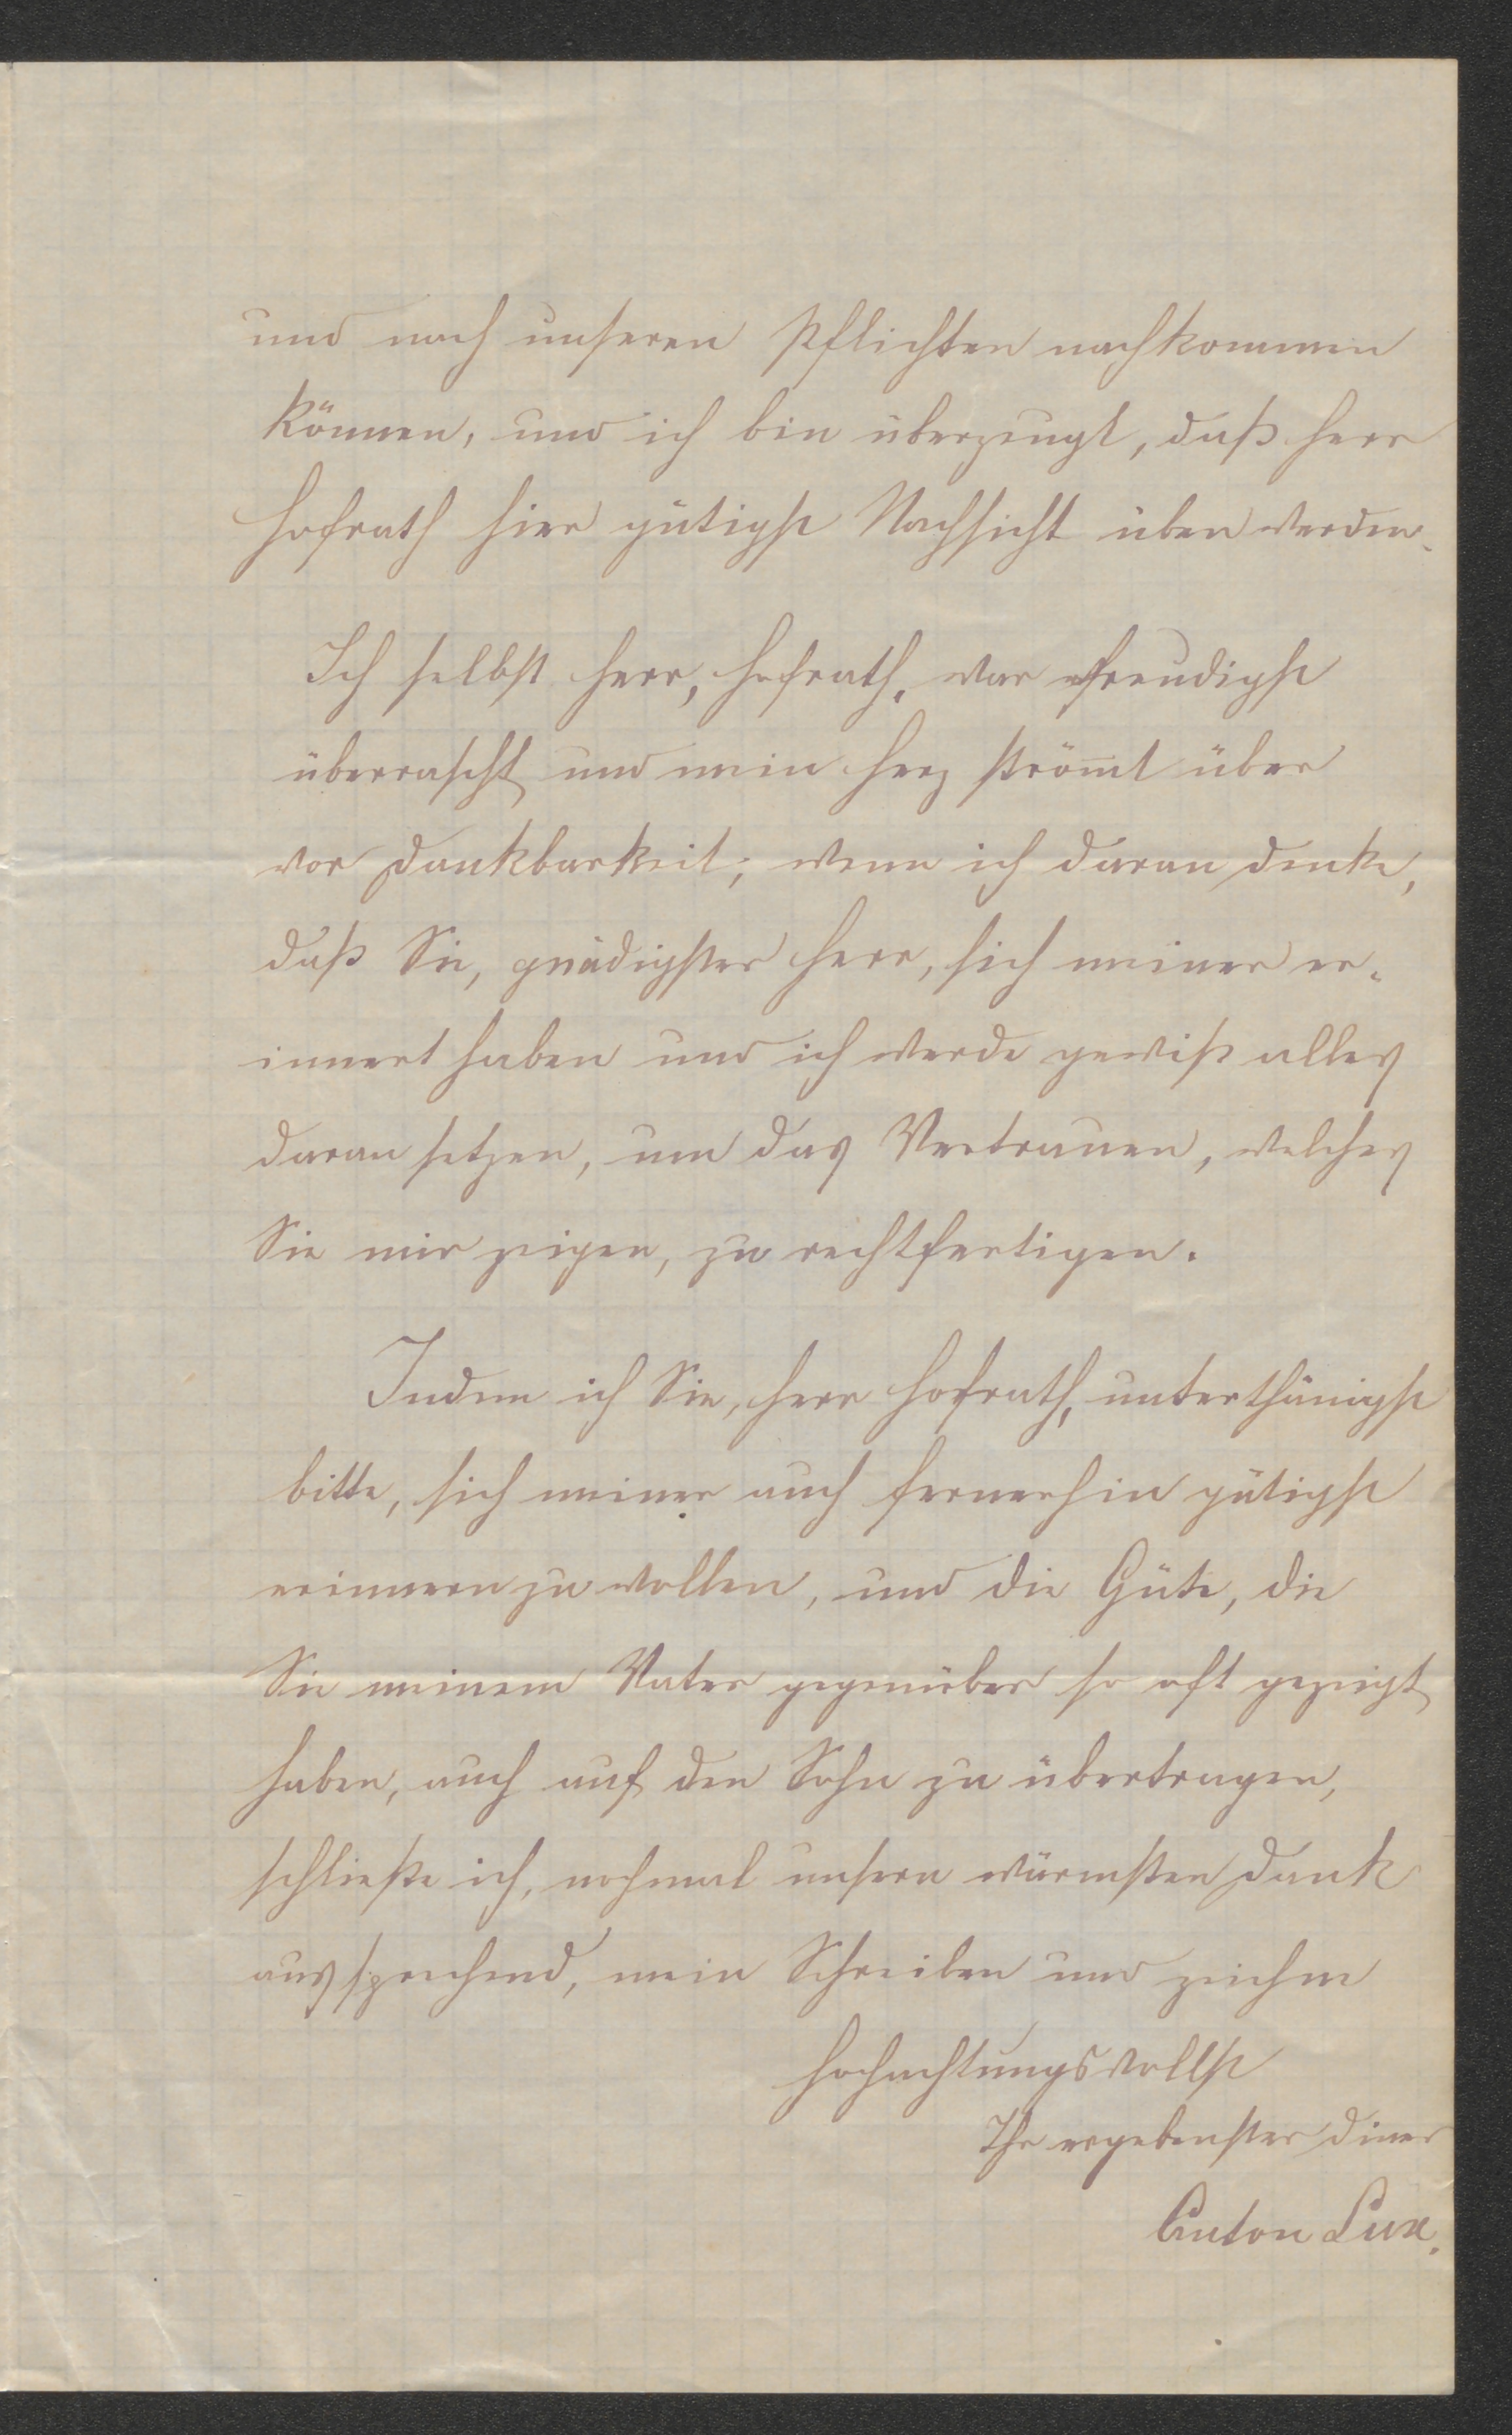 und nach unseren Pflichten nachkommen
können, und ich bin überzeugt, daß Herr
Hofrath hier gütigst Nachsicht üben werden.
Ich selbst Herr, Hofrath, war freudigst
überrascht und mein Herz strömt über
vor Dankbarkeit; wenn ich daran denke,
daß Sie, gnädigster Herr, sich meiner er-
innert haben und ich werde gewiß alles
daran setzen, um das Vertrauen, welches
Sie mir zeigen, zu rechtfertigen.
Indem ich Sie, Herr Hofrath, unterthänigst
bitte, sich meiner auch fernerhin gütigst
erinnern zu wollen, und die Güte, die
Sie meinem Vater gegenüber so oft gezeigt
haben, auch auf den Sohn zu übertragen,
schließe ich, nochmal unsern wärmsten Dank
aussprechend, mein Schreiben und zeichne
Hochachtungsvollst
Ihr ergebenster Diener
Anton Lux.